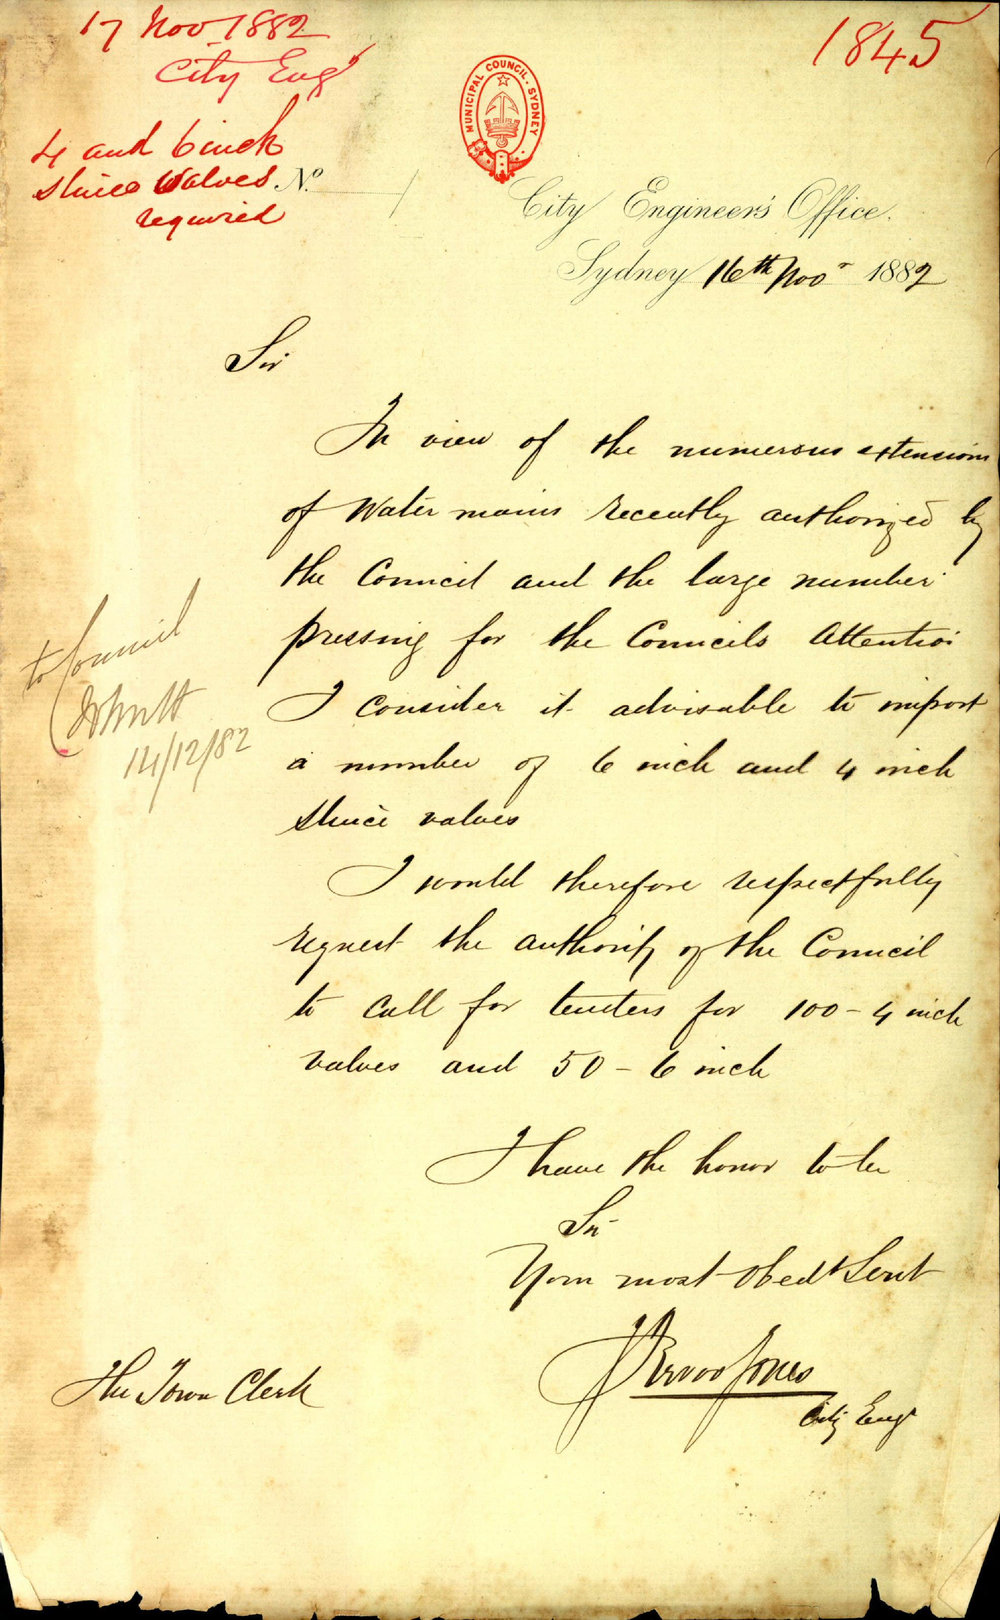 17 Nov 1882
City Engr
4 and 6 inch
Sluice Valves
required
1845
MUNICIPAL COUNCIL. SYDNEY
No.
City Engineer's Office.
Sydney 16th Novr 1882
Sir
In view of the numerous extensions
of Water mains recently authorized by
the Council and the large number
pressing for the Councils Attention
I consider it advisable to import
a number of 6 inch and 4 inch
Sluice valves
I would therefore respectfully
request the authority of the Council
to call for tenders for 100 - 4 inch
valves and 50 - 6 inch
to Council
14/12/82
I have the honor to be
Sir
Your most obedt Servt
Jones
City Engr
The Town Clerk